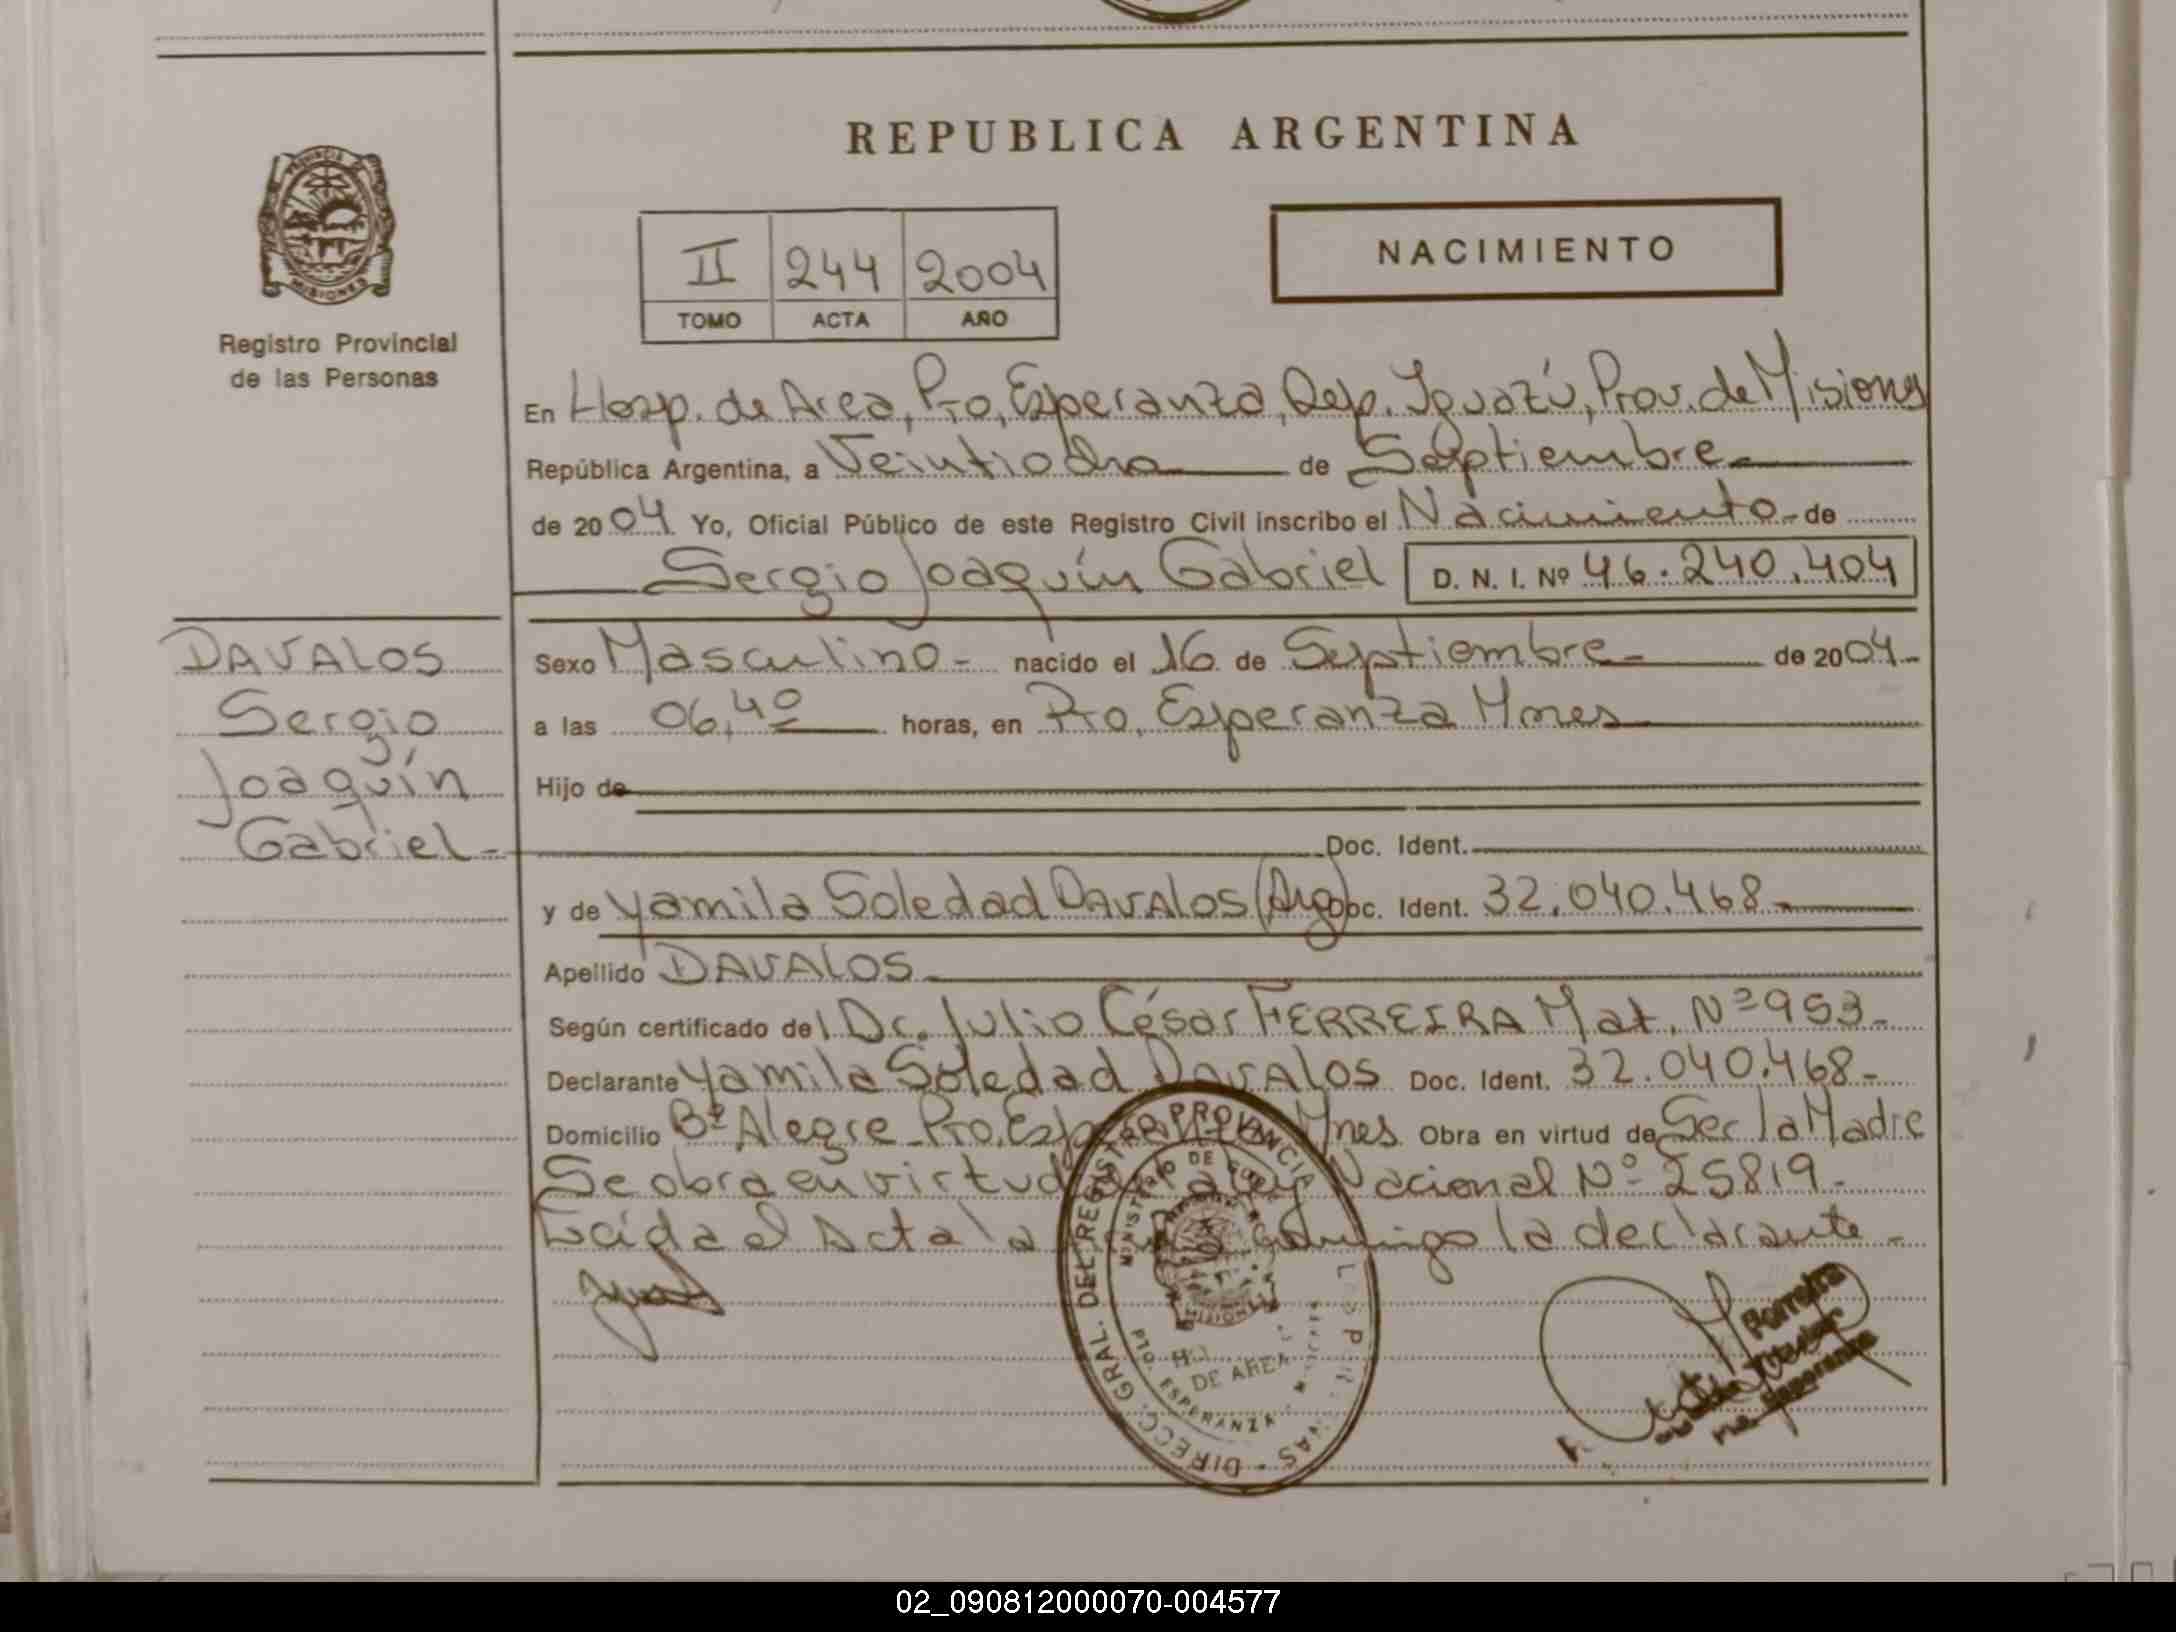 REPUBLICA ARGENTINA
PROVINCIA DE
MISIONES
Registro Provincial
de las Personas
II 244 2004
TOMO ACTA AÑO
NACIMIENTO
En Hosp. de Area, Pto. Esperanza, Dep. Iguazú, Prov. de Misiones
República Argentina, a Veintiocho de Septiembre
de 2004 Yo, Oficial Público de este Registro Civil inscribo el Nacimiento de
Sergio Joaquín Gabriel D. N. I. Nº 46.240.404
DAVALOS
Sergio
Joaquín
Gabriel
Sexo Masculino nacido el 16 de Septiembre de 2004
a las 06,40 horas, en Pto. Esperanza Mnes
Hijo de
Doc. Ident.
y de Yamila Soledad DAVALOS (Arg) Doc. Ident. 32.040.468
Apellido DAVALOS
Según certificado del Dr. Julio César FERREIRA Mat. Nº 953
Declarante Yamila Soledad DAVALOS Doc. Ident. 32.040.468
Domicilio Bº Alegre Pto. Mnes. Obra en virtud de Ser la Madre
Se obra en virtud Ley Nacional Nº 25819
Leída el Acta la conmigo la declarante
DIRECC. GRAL. DEL REGISTRO PROVINCIAL
MINISTERIO DE
MISIONES
DE AREA
PTO. ESPERANZA
02_090812000070-004577